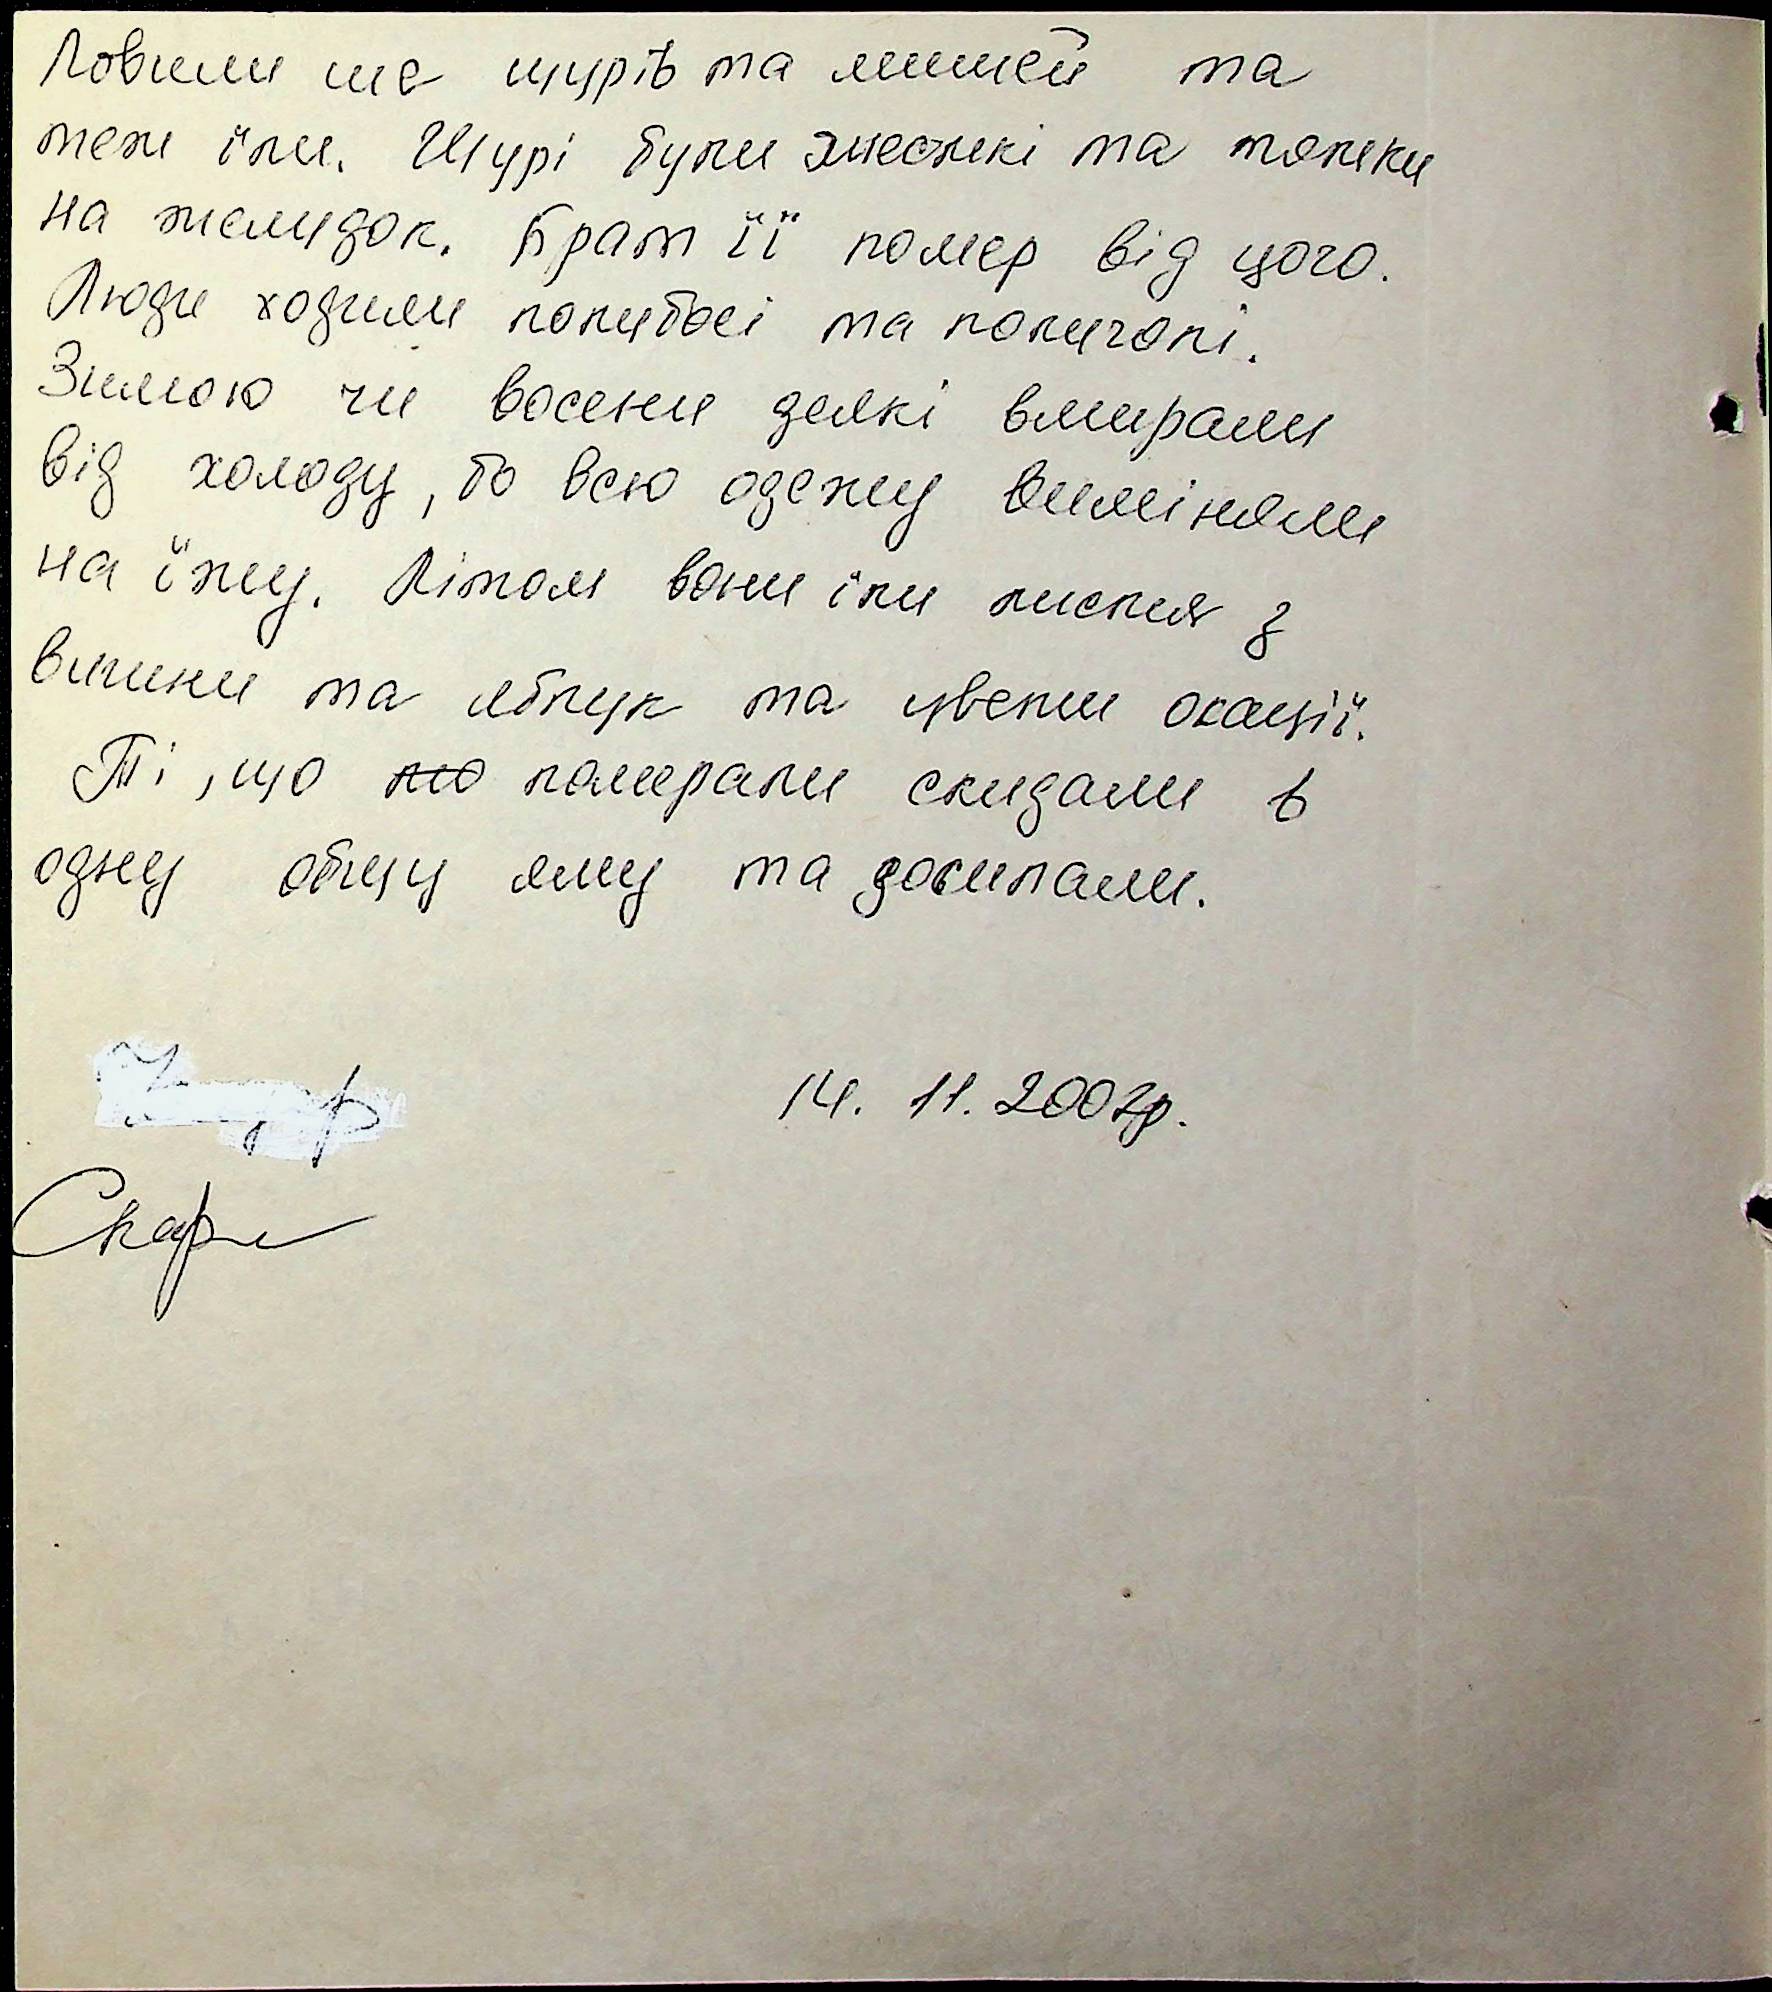 Ловили ше щурів та мишей та
теж їли. Щурі були жесткі та тяжки
на желудок. Брат її помер від цього.
Люди ходили полубосі та полуголі.
Зимою чи восени деякі вмирали
від холоду, бо всю одежу виміняли
на їжу. Літом вони їли листя з
вишни та яблук та цветы окації.
Ті, що помирали скидали в
одну общу яму та досипали.
14. 11. 2007р.